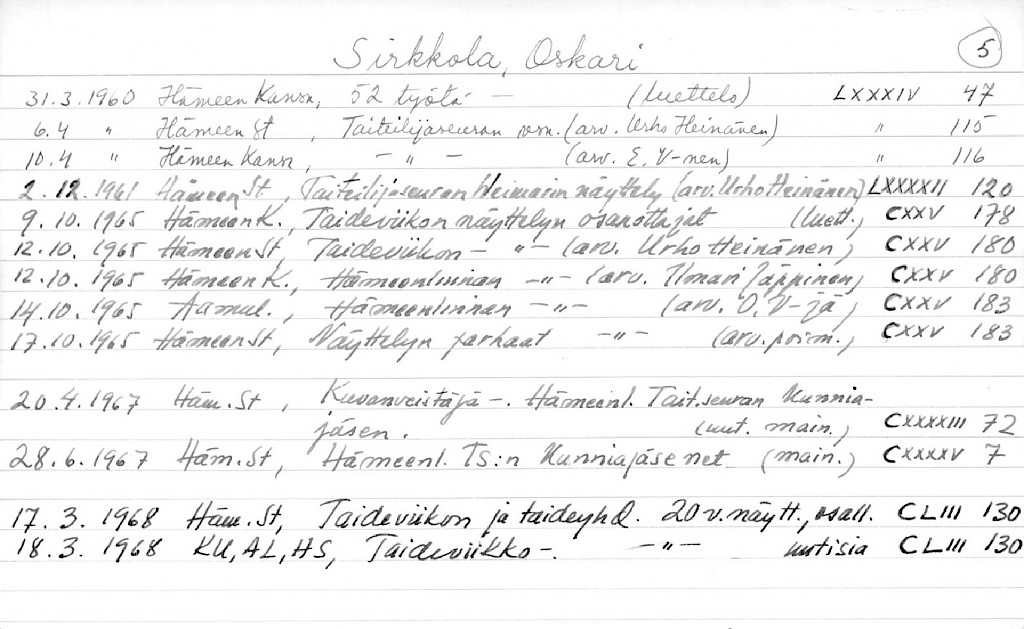 Sirkkola, Oskari 5
31.3.1960 Hämeen Kansa, 52 työtä — (luettelo) LXXXIV 47
6.4 " Hämeen St, Taiteilijaseuran osn. (arv. Urho Heinänen) " 115
10.4 " Hämeen Kansa, — " — (arv. E. V-nen) " 116
2.12.1961 Hämeen St., Taiteilijaseuran Weimarin näyttely (arv. Urho Heinänen) LXXXXII 120
9.10.1965 Hämeen K., Taideviikon näyttelyn osanottajat (luett.) CXXV 178
12.10.1965 Hämeen St, Taideviikon — " — (arv. Urho Heinänen) CXXV 180
12.10.1965 Hämeen K., Hämeenlinnan —"— (arv. Ilmari Jäppinen) CXXV 180
14.10.1965 Aamul., Hämeenlinnan —"— (arv. O. V-jä) CXXV 183
17.10.1965 Hämeen St, Näyttelyn parhaat —"— (arv. poim.) CXXV 183
20.4.1967 Häm. St, Kuvanveistäjä —. Hämeenl. Tait.seuran kunnia-
jäsen. (uut. main.) CXXXXIII 72
28.6.1967 Häm. St, Hämeenl. TS:n kunniajäsenet (main.) CXXXXV 7
17.3.1968 Häm. St, Taideviikon ja taideyhd. 20 v. näytt., osall. CLIII 130
18.3.1968 KU, AL, HS, Taideviikko —. —"— uutisia CLIII 130